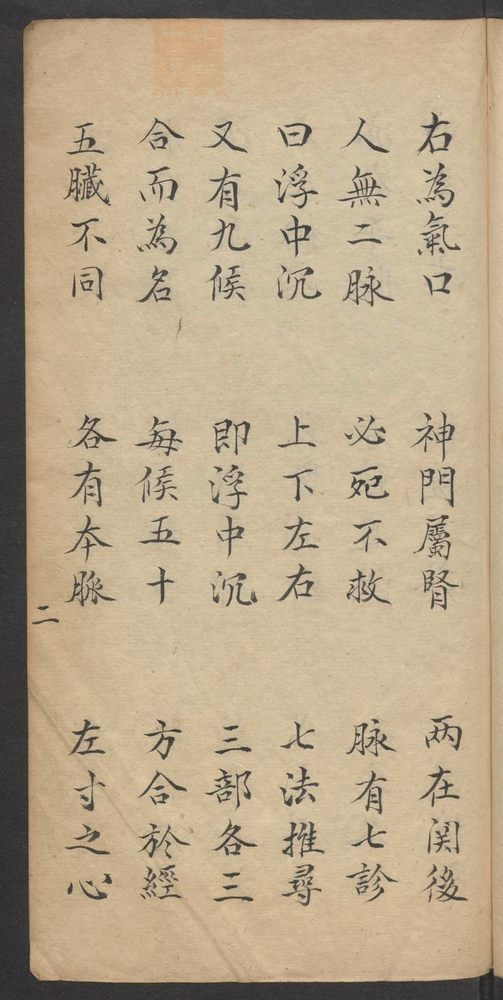 右為氣口　神門屬腎　两在関後
人無二脉　必死不救　脉有七診
曰浮中沉　上下左右　七法推尋
又有九候　即浮中沉　三部各三
合而為名　每候五十　方合於經
五臟不同　各有本脈　左寸之心
二